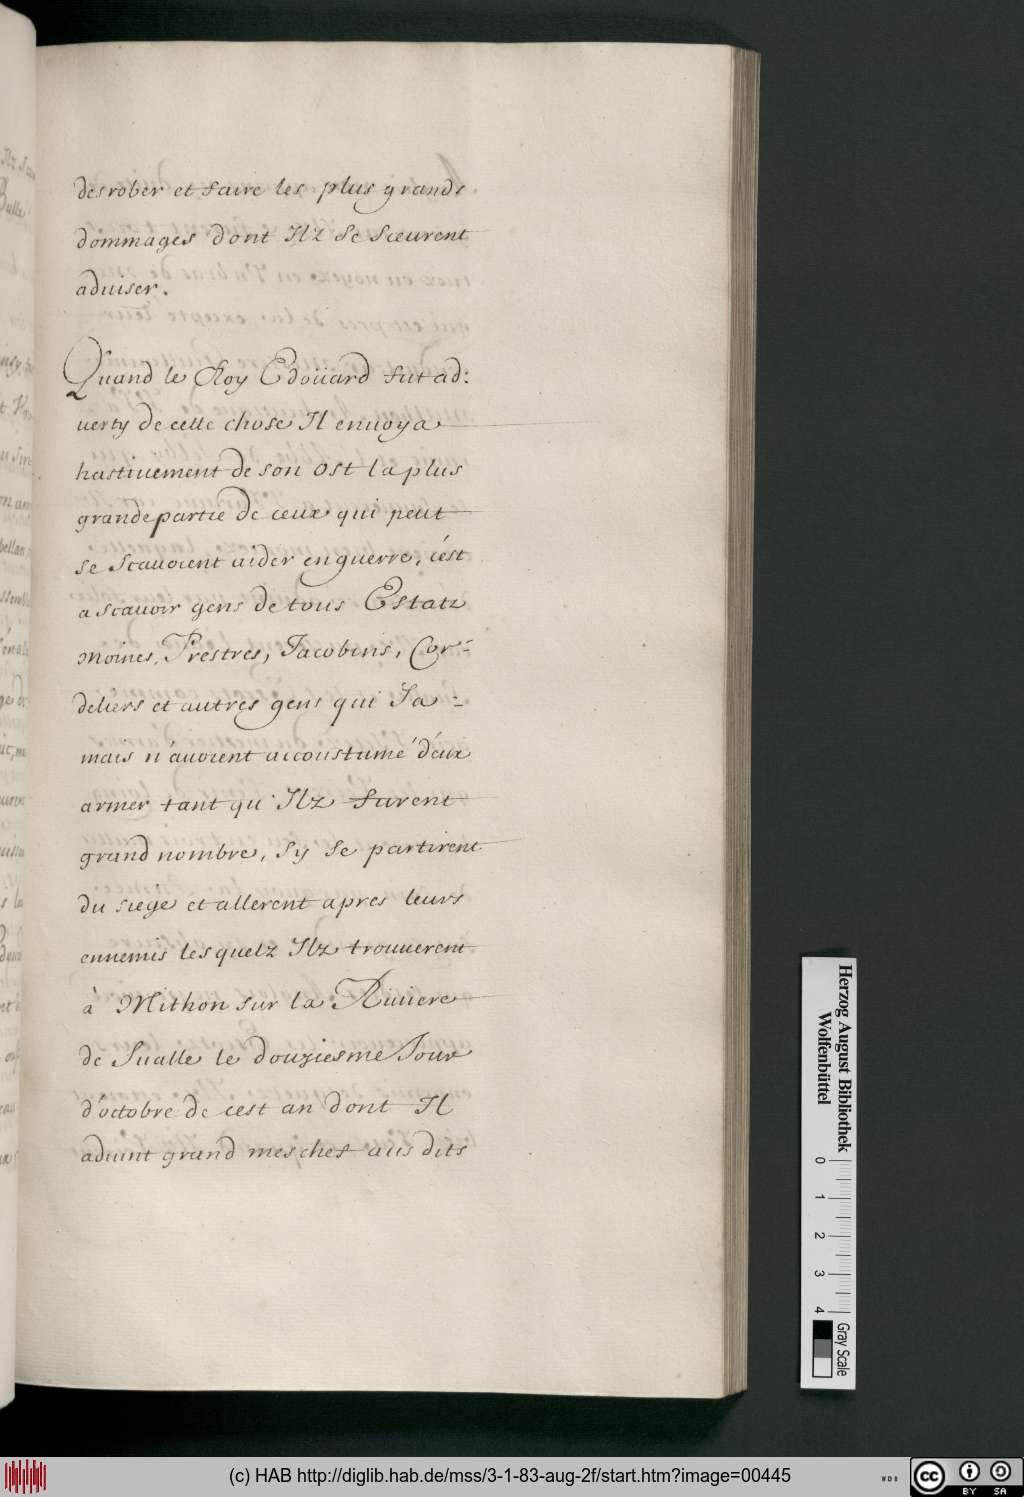 desrober et faire les plus grands
dommages dont Ilz se sceurent
aduiser.
Quand le Roy Edoüard fut ad:
uerty de celle chose Il enuoya
hastiuement de son ost la plus
grande partie de ceux qui peut
se scauoient aider en guerre, c'ést
a scauoir gens de tous Estatz
moines, Prestres, Jacobins, Cor-
deliers et autres gens qui Ja-
mais n'áuoient accoustumé d'éux
armer tant qu'Ilz furent
grand nombre, sy se partirent
du siege et allerent apres leurs
ennemis lesquelz Ilz trouuerent
à Mithon sur la Riuiere
de Sualle le douziesme Jour
d'octobre de cest an dont Il
aduint grand meschef aus dits
Herzog August Bibliothek
Wolfenbüttel
0 1 2 3 4
Gray Scale
(c) HAB http://diglib.hab.de/mss/3-1-83-aug-2f/start.htm?image=00445
cc BY SA